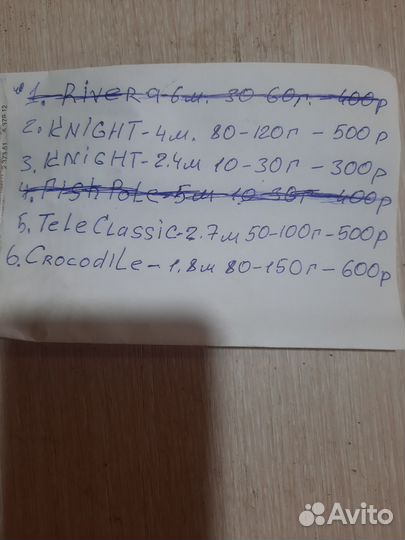 1. Rivera-6м. 30-60г. -400р
2. KNiGHT-4м. 80-120г - 500р
3. KNiGHT-2.4м 10-30г - 300р
4. FishPoLe-5м 10-30г -400р
5. TeLeCLassic-2.7м 50-100г-500р
6. CrocodiLe- 1.8м 80-150г-600р
Avito